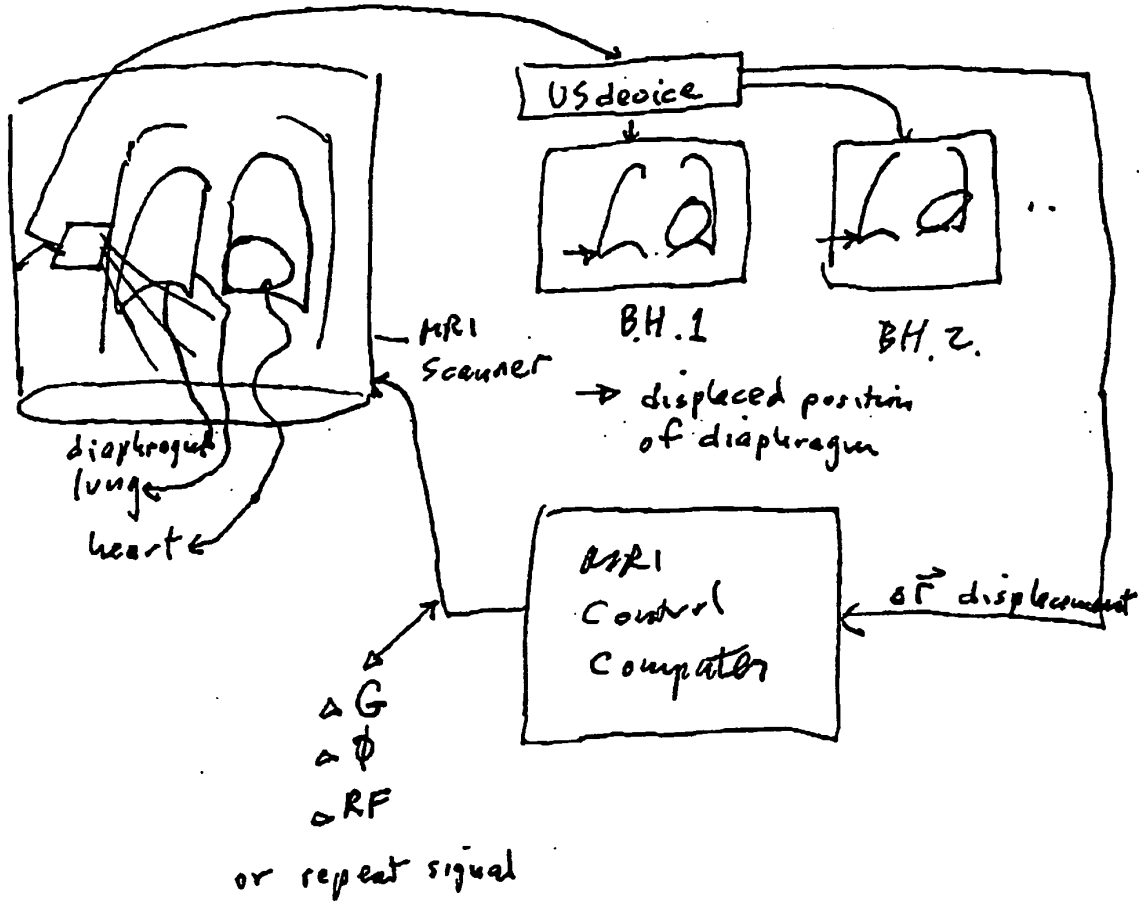 US device
B.H.1
B.H.2.
..
MRI
Scanner
→ displaced position
of diaphragm
diaphragm
lung
heart
MRI
Control
Computer
Δr⃗ displacement
Δ G
Δ Φ
Δ RF
or repeat signal